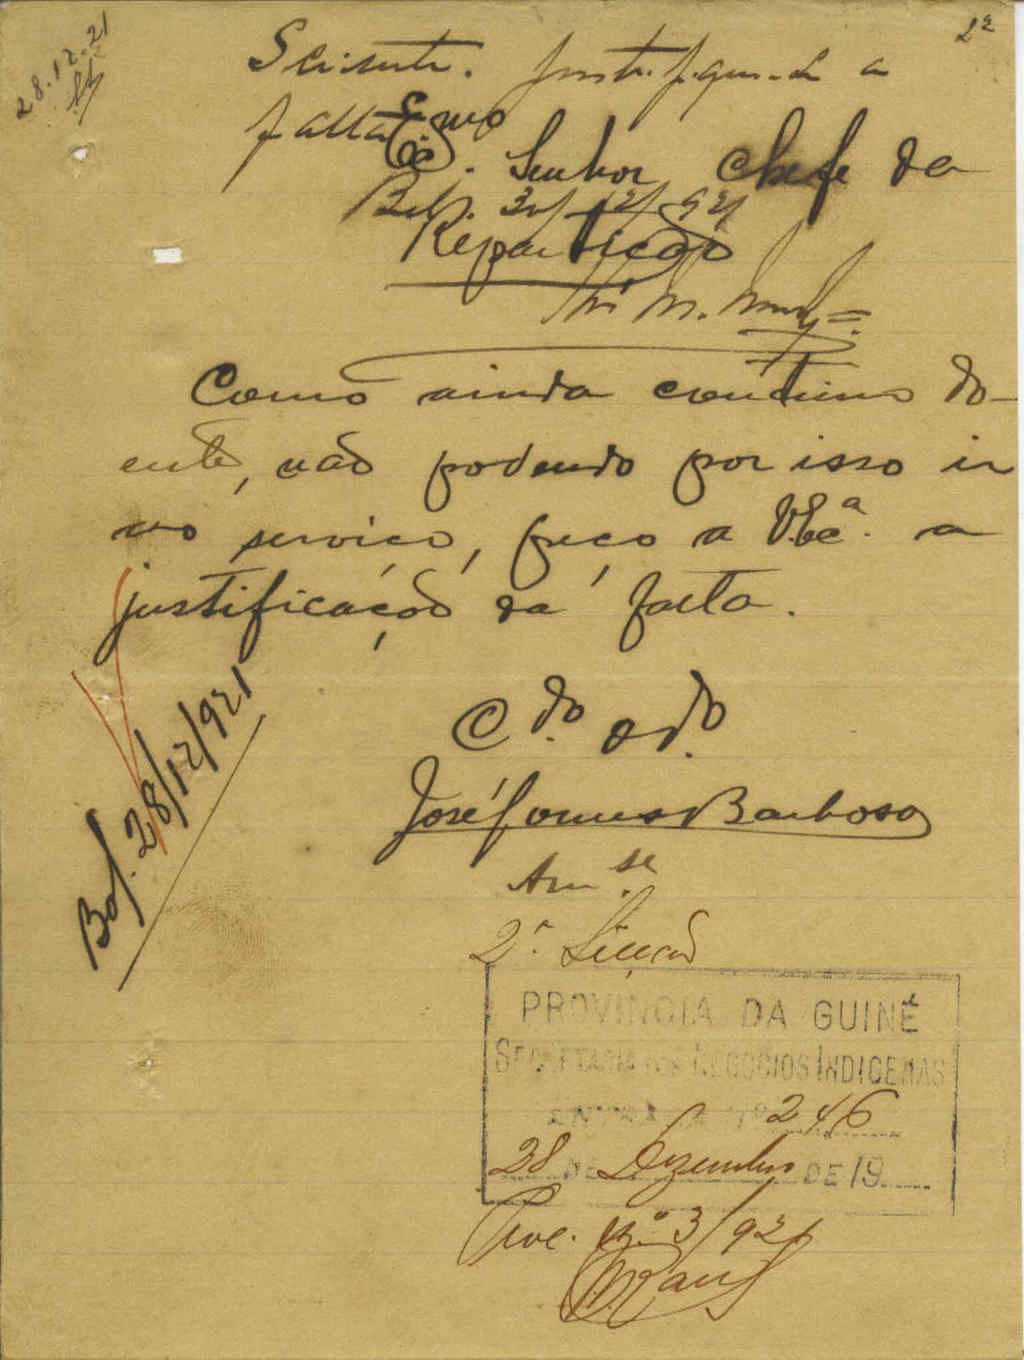 28.12.21
2ª
Sciente. Justifique-se a
falta
Exmo
Senhor Chefe da
Bol. 30/12/921
Repartição
Como ainda continuo do-
ente, não podendo por isso ir
ao serviço, peço a V.Exª. a
justificação da falta.
Bol. 28/12/921
C.do O.do
José Gomes Barbosa
2ª. Secção
PROVINCIA DA GUINÉ
SECRETARIA DOS NEGOCIOS INDIGENAS
ENTRADA Nº 246
28 DE Dezembro DE 19
Proc. n.º 3/921